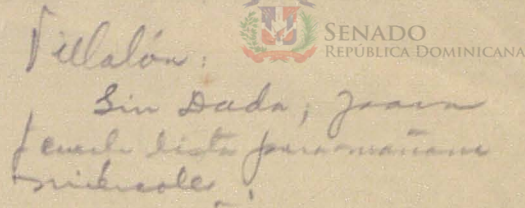 SENADO
REPÚBLICA DOMINICANA
Villalón:
Sin Dada;
lista para mañana
miércoles.